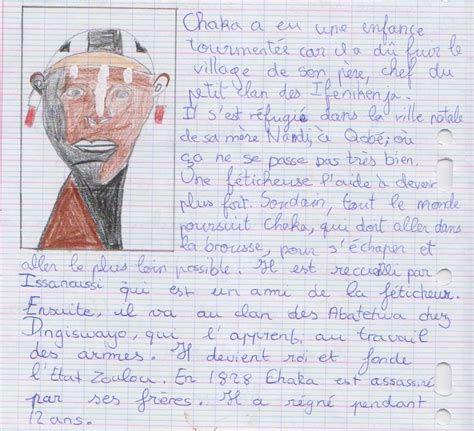 Chaka a eu une enfance
tourmentée car il a dû fuir le
village de son père, chef du
petit clan des Ifenikenja.
Il s'est réfugié dans la ville natale
de sa mère Nandi, à Qobé; où
ça ne se passe pas très bien.
Une féticheuse l'aide à devenir
plus fort. Soudain, tout le monde
poursuit Chaka, qui doit aller dans
la brousse, pour s'échaper et
aller le plus loin possible. Il est recueilli par
Issanoussi qui est un ami de la féticheur.
Ensuite, il va au clan des Abatetwa chez
Dingiswayo, qui l'apprent au travail
des armes. Il devient roi et fonde
l'Etat Zoulou. En 1828 Chaka est assassiné
par ses frères. Il a régné pendant
12 ans.